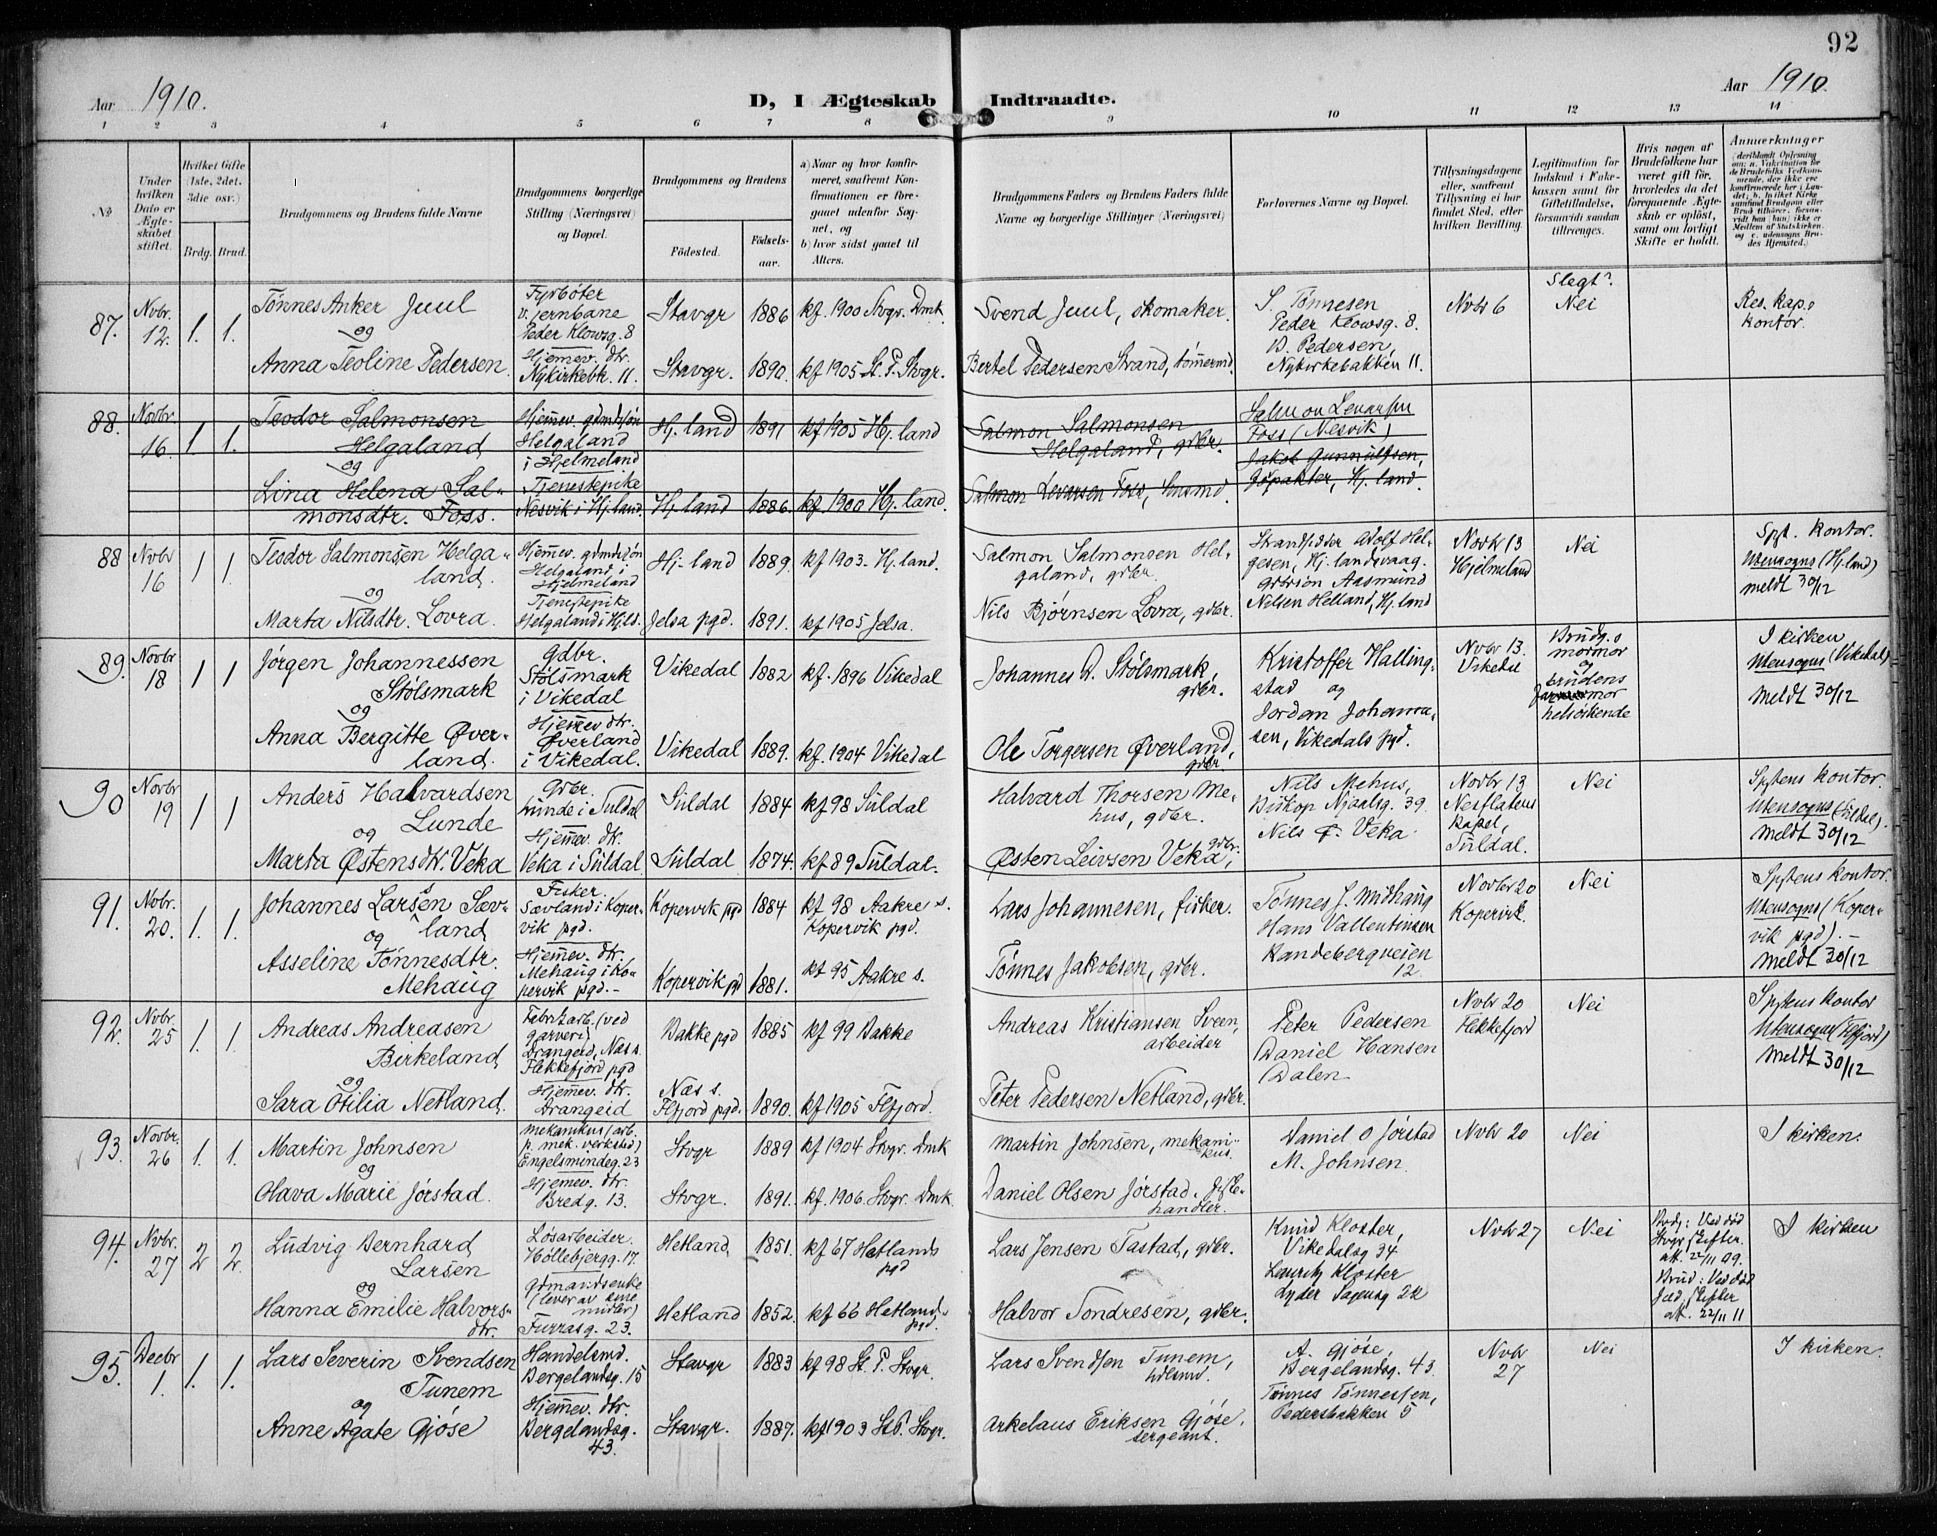 92
Aar 1910.
D, I Ægteskab Indtraadte.
Aar 1910.
1 2 3 4 5 6 7 8 9 10 11 12 13 14
№
Under hvilken Dato er Ægteskabet stiftet.
Hvilket Gifte (1ste, 2det, 3die osv.)
Brdg. Brud.
Brudgommens og Brudens fulde Navne
Brudgommens borgerlige Stilling (Næringsvei) og Bopæl.
Brudgommens og Brudens
Födested.
Födselsaar.
a) Naar og hvor konfirmeret, saafremt Konfirmationen er foregaaet udenfor Sognet, og
b) hvor sidst gaaet til Alters.
Brudgommens Faders og Brudens Faders fulde Navne og borgerlige Stillinger (Næringsvei)
Forlovernes Navne og Bopæl.
Tillysningsdagene eller, saafremt Tillysning ei har fundet Sted, efter hvilken Bevilling.
Legitimation for Indskud i Enkekassen samt for Giftetilladelse, forsaavidt saadan tiltrænges.
Hvis nogen af Brudefolkene har været gift för, hvorledes da det foregaaende Ægteskab er oplöst, samt om lovligt Skifte er holdt.
Anmærkninger
87. Novbr. 12. 1. 1.
Tönnes Anker Juul
og
Anna Teoline Pedersen
Fyrböter
v. jernbane
Peder Klowsg. 8
Hjemev. dtr.
Nykirkebk. 11.
Stavgr 1886 kf. 1900 Stvgr. Dmk.
Stavgr. 1890. kf 1905 St. P. Stvgr.
Svend Juul, skomaker.
Bertel Pedersen Strand, tömermd.
S. Tönnesen
Peder Klowsg. 8.
B. Pedersen,
Nykirkebakken 11.
Novbr 6
Slegt?
Nei
Res. kap.s
kontor.
88. Novbr. 16. 1. 1.
Teodor Salmonsen
Helgaland
og
Lina Helena Sal-
monsdtr. Foss.
Hjemev. gdmdssön
Helgaland
i Hjelmeland
Tjenestepike
Nesvik i Hj.land.
Hj. land 1891 kf 1905 Hj. land
Hj. land 1886. kf. 1900 Hj. land.
Salmon Salmonsen
Helgaland, gdbr.
Salmon Levarsen Foss, husmd.
Salmon Levarsen
Foss (Nesvik)
Jakob Gunnulfsen,
Hj. land.
88 Novbr 16 1 1
Teodor Salmonsen Helga-
land.
og
Marta Nilsdtr. Lovra.
Hjemev. gdmdssön
Helgaland i
Hjelmeland
Tjenestepike
Helgaland i Hjls.
Hj. land 1889. kf. 1903. Hj. land.
Jelsa pgd. 1891. kf 1905 Jelsa.
Salmon Salmonsen Hel-
galand, gdbr.
Nils Bjørnsen Lovra, gdbr.
Strandsidder Adolf Hel-
gesen, Hj. landsvaag.
gdbrsön Aasmund
Nilsen Helland, Hj. land
Novbr 13
Hjelmeland
Nei
Spst. kontor.
Utensogns (Hj. land)
meldt 30/12
89. Novbr 18 1 1
Jørgen Johannessen
Stølsmark
og
Anna Bergitte Øver-
land.
Gdbr.
Stølsmark
i Vikedal
Hjemev dtr.
Øverland
i Vikedal.
Vikedal 1882 kf. 1896 Vikedal
Vikedal 1889. kf. 1904 Vikedal
Johannes D. Stølsmark,
gdbr.
Ole Torgersen Øverland,
gdbr
Kristoffer Halling-
stad og
Jordan Johanne-
sen, Vikedals pgd.
Novbr 13.
Vikedal
Brudg.s
mormor
og
brudens
mor
helsöskende
I kirken
Utensogns (Vikedal)
Meldt 30/12
90 Novbr 19 1 1
Anders Halvardsen
Lunde
og
Marta Østensdtr. Veka
Gdbr.
Lunde i Suldal
Hjemev. dtr.
Veka i Suldal
Suldal 1884 kf 98 Suldal
Suldal 1874. kf 89 Suldal.
Halvard Thorsen Me-
hus, gdbr.
Østen Leivsen Veka, gdbr.
Nils Mehus,
Biskop Njaalsg. 39.
Nils Ø. Veka.
Novbr 13
Nesflatens
kapel,
Suldal.
Nei
Spstens kontor.
Utensogns (Suldal).
Meldt 30/12
91. Novbr. 20. 1. 1.
Johannes Larsen Sæv-
land
og
Asseline Tönnesdtr.
Mehaug
Fisker.
Sævland i Koper-
vik pgd.
Hjemev. dtr.
Mehaug i Ko-
pervik pgd.
Kopervik pgd 1884 kf 98 Aakre s.
Kopervik pgd.
Kopervik pgd 1881. kf 95 Aakre s.
Lars Johannesen, fisker.
Tönnes Jakobsen, gdbr.
Tönnes J. Midhaug
Hans Vallentinsen
Randebergveien
12.
Novbr 20
Kopervik.
Nei
Spstens kontor.
Utensogns (Koper-
vik pgd).
Meldt 30/12
92. Novbr. 25 1. 1.
Andreas Andreasen
Birkeland
og
Sara Otilia Netland.
Fabrikarb. (ved
garveri)
Drangeid, Næs s.
Flekkefjord pgd
Hjemev. dtr.
Drangeid
Bakke pgd 1885 kf 99 Bakke
Næs s.
Flfjord pgd. 1890. kf 1905 Flfjord.
Andreas Kristiansen Sveen,
arbeider
Peter Pedersen Netland, gdbr.
Peter Pedersen
Daniel Hansen
Dalen
Novbr 20
Flekkefjord
Nei
Spstens kontor
Utensogns (Flfjord)
Meldt 30/12
93. Novbr. 26 1. 1.
Martin Johnsen
og
Olava Marie Jørstad.
Mekanikus (arb.
p. mek. verksted)
Engelsmindeg. 23
Hjemev. dtr.
Bredg. 13.
Stvgr 1889 kf 1904 Stvgr. Dmk
Stvgr. 1891. kf. 1906. Stvgr. Dmk.
Martin Johnsen, mekani-
kus.
Daniel Olsen Jørstad. fiske-
handler.
Daniel O Jørstad
M. Johnsen.
Novbr 20
Nei
I kirken.
94. Novbr. 27 2 2.
Ludvig Bernhard
Larsen
og
Hanna Emilie Halvors-
dtr.
Løsarbeider.
Höllebjergg. 17.
gdmandsenke
(lever av sine
midler)
Furrasg. 23.
Hetland 1851. kf 67 Hetlands
pgd
Hetland 1852. kf 66 Hetland.
pgd.
Lars Jensen Tastad, gdbr.
Halvor Tondresen, gdbr.
Knud Kloster,
Vikedalsg 34.
Lauritz Kloster
Lyder Sagensg 22
Novbr 27
Nei
Brdg: Ved död
Stvgr. skifter.
att. 22/11 09.
Brud: Ved död
Jæd. skifter
att. 22/11 11
I kirken
95. Decbr 1. 1. 1.
Lars Severin Svendsen
Tunem
og
Anne Agate Gjöse
Handelsmd.
Bergelandsg. 15
Hjemev. dtr.
Bergelandsg.
43.
Stavgr 1883 kf 98 St. P. Stvgr.
Stavgr. 1887. kf 1903 St P. Stvgr.
Lars Svendsen Tunem,
hdlsmd.
Arkelaus Eriksen Gjöse,
sergeant.
A. Gjöse,
Bergelandsg. 43.
Tönnes Tönnessen,
Pedersbakken 5
Novbr
27
Nei
I kirken.